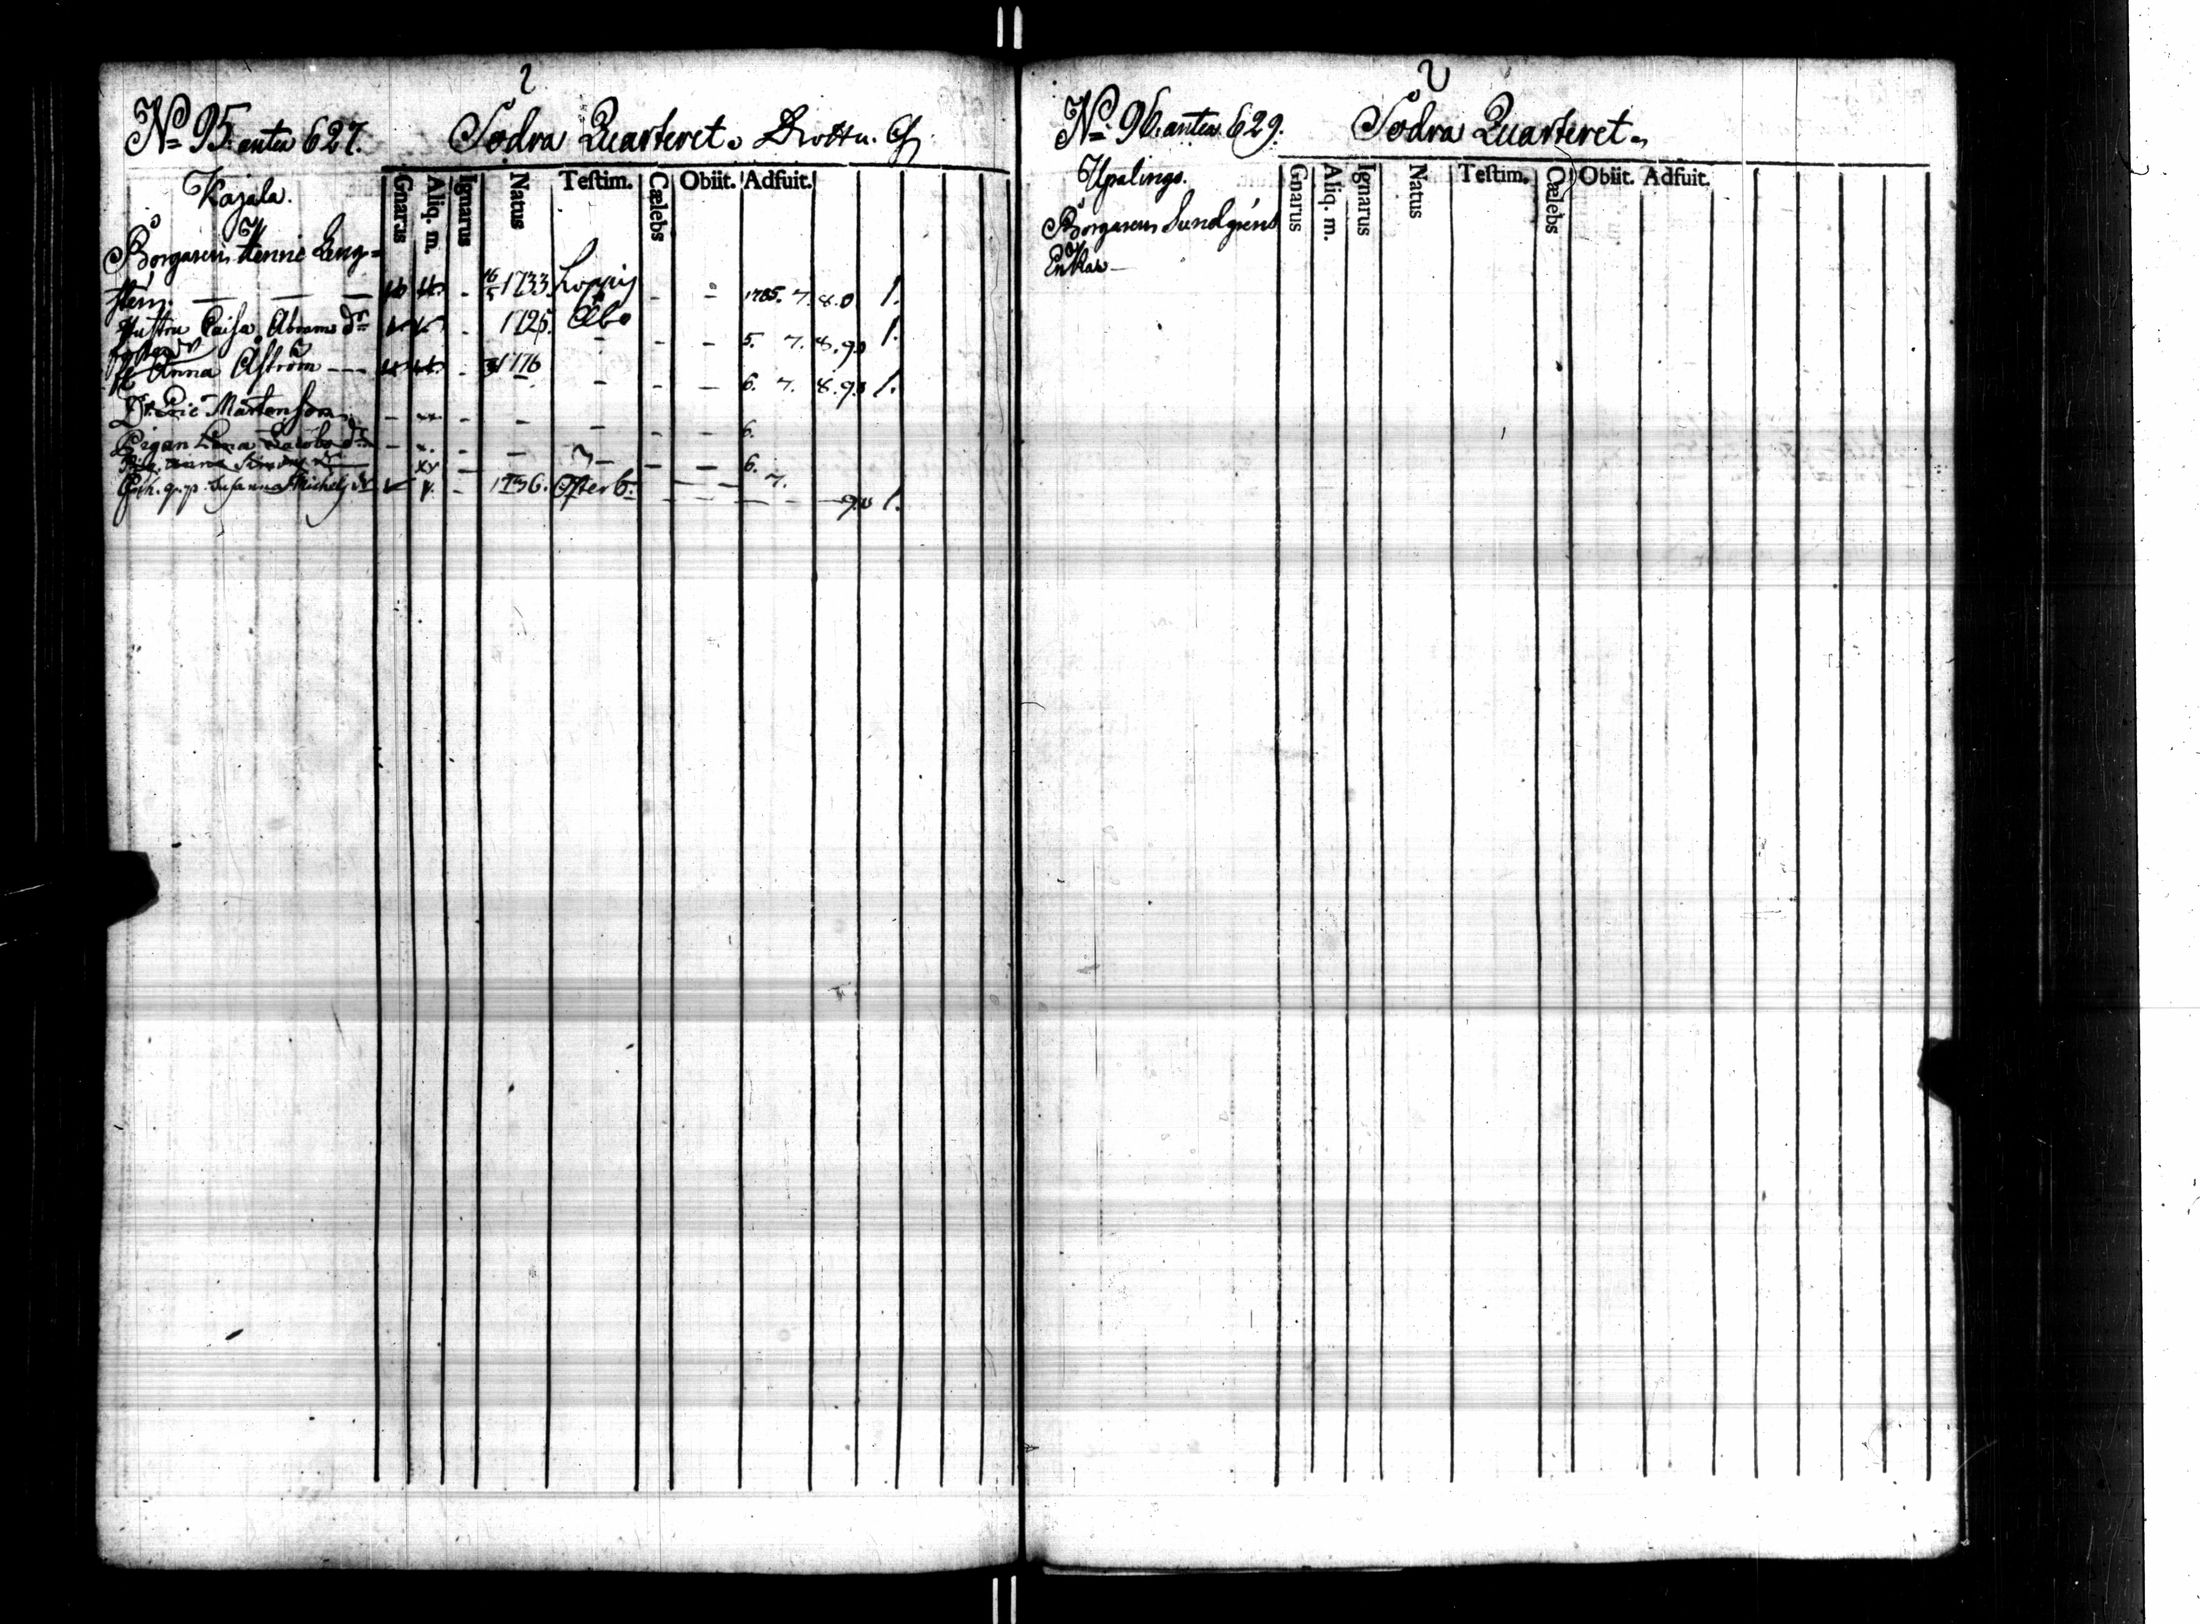 2
No 95. antea 627. Södra Quarteret. Drottn. G
Kajala.
Gnarus Aliq. m. Ignarus Natus Testim. Cælebs Obiit. Adfuit.
Borgaren Henric Leng=
sten. — — — 16/5 1733. Loppis - - 1785. 7. 8. 0. 1.
Hustru Caisa Abrams dr 1725. Åbo - - 5. 7. 8. 90 1.
Anna Åström - 1776 - - - 6. 7. 8. 90 1.
Dr. Eric Mårtensson - xx. - - - - - 6.
Pigan Lena Jacobs dr - x. - - - - 6.
Pig. Anna Simons dr xx - - - 7.
Enk. Susanna Michels dr x. - 1736. Österb. - - - - 90 1.
2
No 96. antea 629. Södra Quarteret.
Upalingo.
Gnarus Aliq. m. Ignarus Natus Testim. Cælebs Obiit. Adfuit.
Borgaren Sundgréns
Enka —